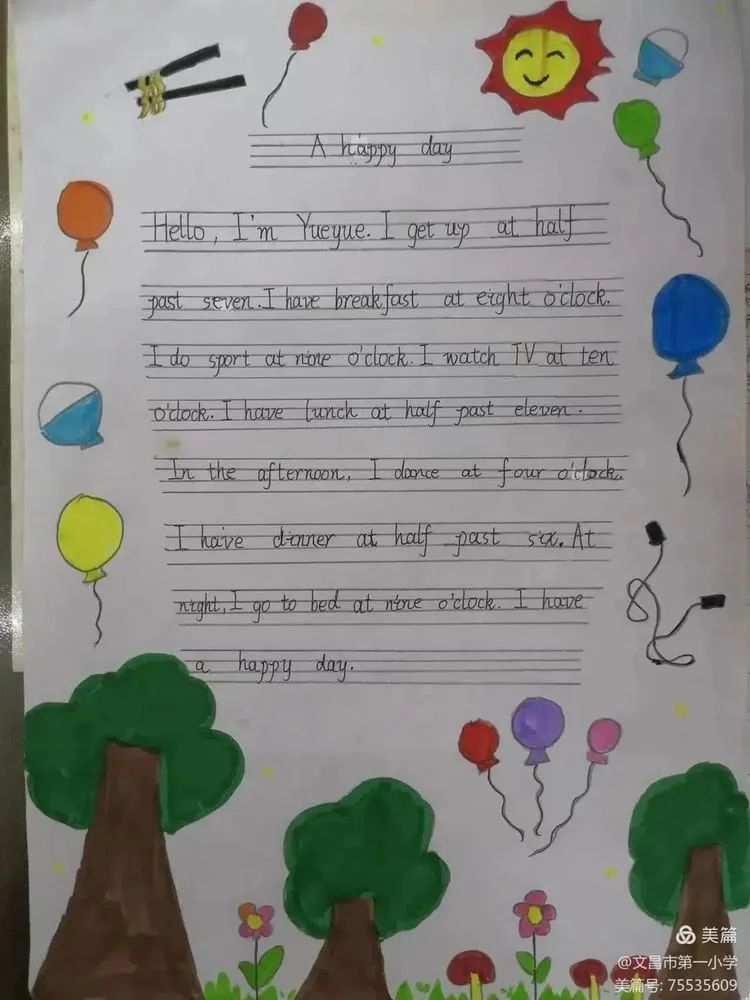 A happy day
Hello, I'm Yueyue. I get up at half
past seven. I have breakfast at eight o'clock.
I do sport at nine o'clock. I watch TV at ten
o'clock. I have lunch at half past eleven.
In the afternoon, I dance at four o'clock.
I have dinner at half past six. At
night, I go to bed at nine o'clock. I have
a happy day.
美篇
@文昌市第一小学
美篇号: 75535609